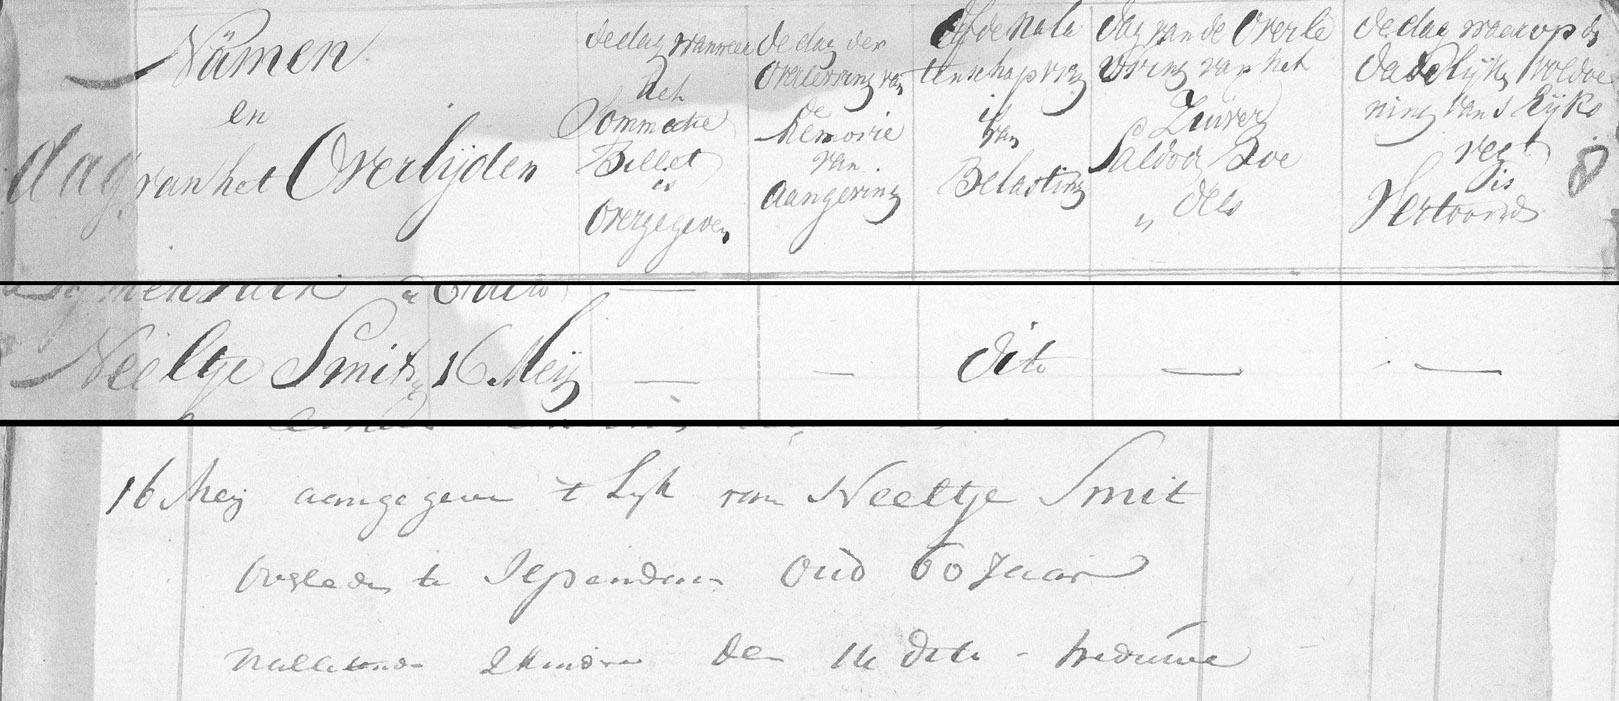 Namen
en
dag van het Overlijden
de dag wanneer
het
Sommatie
Billet
is
Overgegeven
de dag der
Overlevering van
de
Memorie
van
aangeving
Of de Nala
tenschap vry
is
van
Belasting
dag van de Overle
vering van het
Zuiver
Saldo
" dito
de dag waarop de
dadelijke voldoe
ning van s Rijks
regt
is
Vertoond
8
6 dito —
Neeltje Smit 16 Meij — — dito — —
16 Meij aangegeven t Lyk van Neeltje Smit
Overleden te Ilpendam Oud 60 Jaar
nalatende 2 kinderen den 14 dito - weduwe